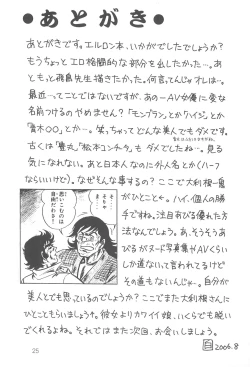 ●あとがき●
あとがきです。エルロン本、いかがでしたでしょうか?
もうちょっとエロ格闘的な部分を出したかった…。あ
ともっと飛鳥先生描きたかった。何言ってんじゃオレは…。
最近…ってことではないですが、あの…AV女優に変な
名前つけるのやめません?「モンブラン」とか「ハイジ」とか
「青木○○」とか…。笑っちゃってどんな美人でもダメです。
古くは「豊丸」「松本コンチータ」もダメでしたね…。見る
気になれない。あと日本人なのに外人名とか(ハーフ
ならいいけど)。なぜそんな事するの?ここで大利根一息
がひとこと。ハイ、個人の勝
手ですね。注目あびる優れた方
法なんでしょう。あ、そうそうあ
びるがヌード写真集やAVくらい
しか道ないって言われてるけど
その道もないんじゃ…。自分が
美人とでも思っているのでしょうか?ここでまた大利根さんに
ひとこともらいましょう。彼女よりカワイイ娘、いくらでも脱い
でくれるよね。それではまた次回、お会いしましょう。
思いこむのは
自由だわよ!
そりゃ
まぁ
25
2006.8